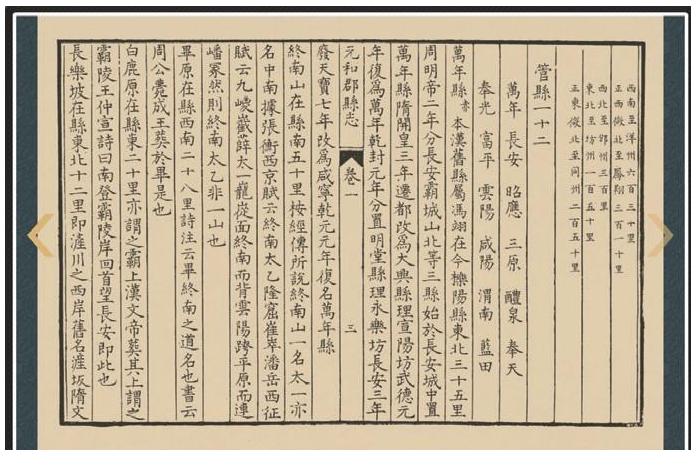 西南至洋州六百三十里
正西微北至鳳翔三百一十里
西北至邠州三百里
東北至坊州一百五十里
正東微北至同州二百五十里
管縣一十二
萬年 長安 昭應 三原 醴泉 奉天
奉光 富平 雲陽 咸陽 渭南 藍田
萬年縣赤 本漢舊縣屬馮翊在今櫟陽縣東北三十五里
周明帝二年分長安霸城山北等三縣始於長安城中置
萬年縣隋開皇三年遷都改爲大興縣理宣陽坊武德元
年復爲萬年乾封元年分置明堂縣理永樂坊長安三年
元和郡縣志 卷一 三
廢天寶七年改爲咸寧乾元元年復名萬年縣
終南山在縣南五十里按經傳所說終南山一名太一亦
名中南據張衡西京賦云終南太乙隆窟崔崒潘岳西征
賦云九嵕巀嶭太一巃嵸面終南而背雲陽跨平原而連
嶓冢然則終南太乙非一山也
畢原在縣西南二十八里詩注云畢終南之道名也書云
周公薨成王葬於畢是也
白鹿原在縣東二十里亦謂之霸上漢文帝葬其上謂之
霸陵王仲宣詩曰南登霸陵岸回首望長安即此也
長樂坡在縣東北十二里即滻川之西岸舊名滻坂隋文